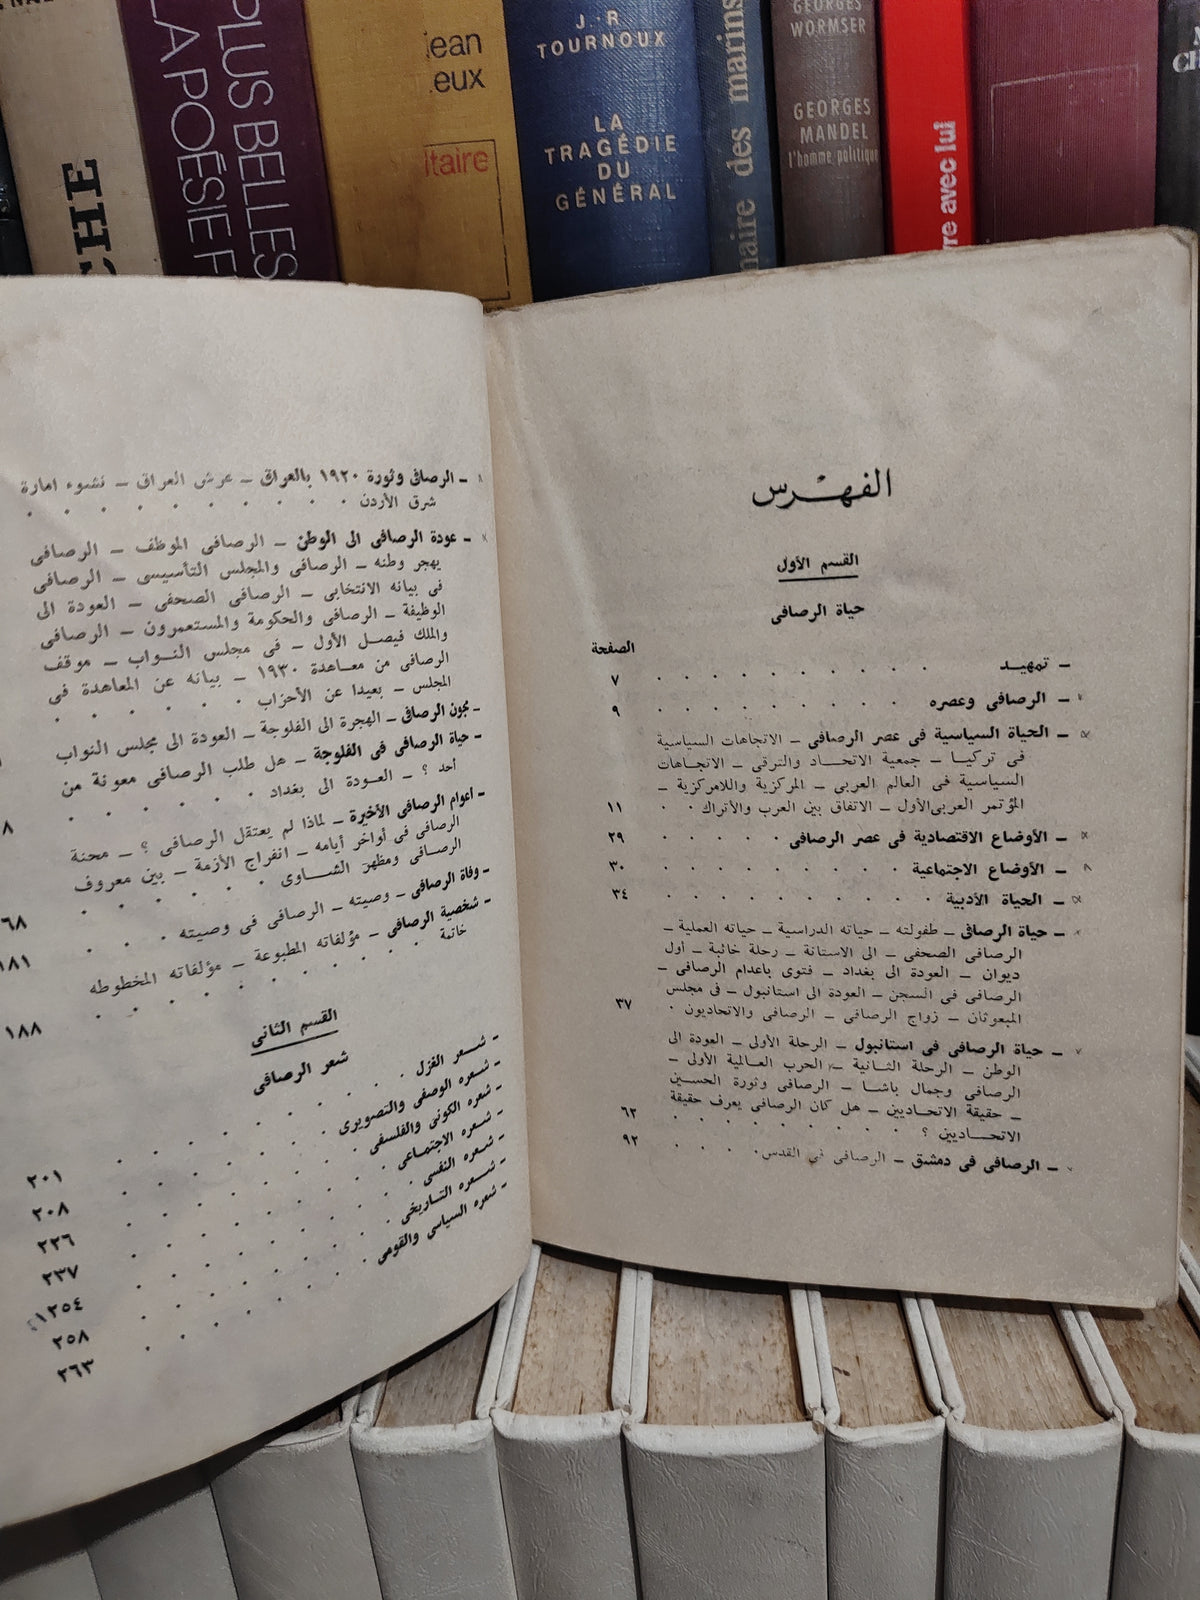 PLUS BELLES
LA POÉSIE F
CHE
Jean
eux
itaire
J.-R
TOURNOUX
LA
TRAGÉDIE
DU
GÉNÉRAL
naire des marins
GEORGES
WORMSER
GEORGES
MANDEL
l'homme politique
vre avec lui
الفهرس
القسم الأول
حياة الرصافى
الصفحة
– تمهيد . . . . . . . . . ٧
– الرصافى وعصره . . . . . . . . . ٩
– الحياة السياسية فى عصر الرصافى – الاتجاهات السياسية
فى تركيا – جمعية الاتحاد والترقى – الاتجاهات
السياسية فى العالم العربى – المركزية واللامركزية –
المؤتمر العربى الأول – الاتفاق بين العرب والأتراك . . ١١
– الأوضاع الاقتصادية فى عصر الرصافى . . . . . ٢٩
– الأوضاع الاجتماعية . . . . . . . . . ٣٠
– الحياة الأدبية . . . . . . . . . . ٣٤
– حياة الرصافى – طفولته – حياته الدراسية – حياته العملية –
الرصافى الصحفى – الى الاستانة – رحلة خائبة – أول
ديوان – العودة الى بغداد – فتوى باعدام الرصافى –
الرصافى فى السجن – العودة الى استانبول – فى مجلس
المبعوثان – زواج الرصافى – الرصافى والاتحاديون . ٣٧
– حياة الرصافى فى استانبول – الرحلة الأولى – العودة الى
الوطن – الرحلة الثانية – الحرب العالمية الأولى –
الرصافى وجمال باشا – الرصافى وثورة الحسين
– حقيقة الاتحاديين – هل كان الرصافى يعرف حقيقة
الاتحاديين ؟ . . . . . . . . ٦٢
– الرصافى فى دمشق – الرصافى فى القدس . . . . ٩٢
– الرصافى وثورة ١٩٢٠ بالعراق – عرش العراق – نشوء امارة
شرق الأردن . . . . . . . . .
– عودة الرصافى الى الوطن – الرصافى الموظف – الرصافى
يهجر وطنه – الرصافى والمجلس التأسيسى – الرصافى
فى بيانه الانتخابى – الرصافى الصحفى – العودة الى
الوظيفة – الرصافى والحكومة والمستعمرون – الرصافى
والملك فيصل الأول – فى مجلس النواب – موقف
الرصافى من معاهدة ١٩٣٠ – بيانه عن المعاهدة فى
المجلس – بعيدا عن الأحزاب . . . . . .
– مجون الرصافى – الهجرة الى الفلوجة – العودة الى مجلس النواب
– حياة الرصافى فى الفلوجة – هل طلب الرصافى معونة من
أحد ؟ – العودة الى بغداد . . . . . . ٨
– أعوام الرصافى الأخيرة – لماذا لم يعتقل الرصافى ؟ – محنة
الرصافى فى أواخر أيامه – انفراج الأزمة – بين معروف
الرصافى ومظهر الشاوى . . . . . . ٦٨
– وفاة الرصافى – وصيته – الرصافى فى وصيته . . . ١٨١
– شخصية الرصافى – مؤلفاته المطبوعة – مؤلفاته المخطوطه
خاتمة . . . . . . . . ١٨٨
القسم الثانى
شعر الرصافى
– شعر الغزل . . . . . . . . ٢٠١
– شعره الوصفى والتصويرى . . . . . . ٢٠٨
– شعره الكونى والفلسفى . . . . . . ٢٢٦
– شعره الاجتماعى . . . . . . . ٢٣٧
– شعره النفسى . . . . . . . . ٢٥٤
– شعره التاريخى . . . . . . . ٢٥٨
– شعره السياسى والقومى . . . . . . ٢٦٣